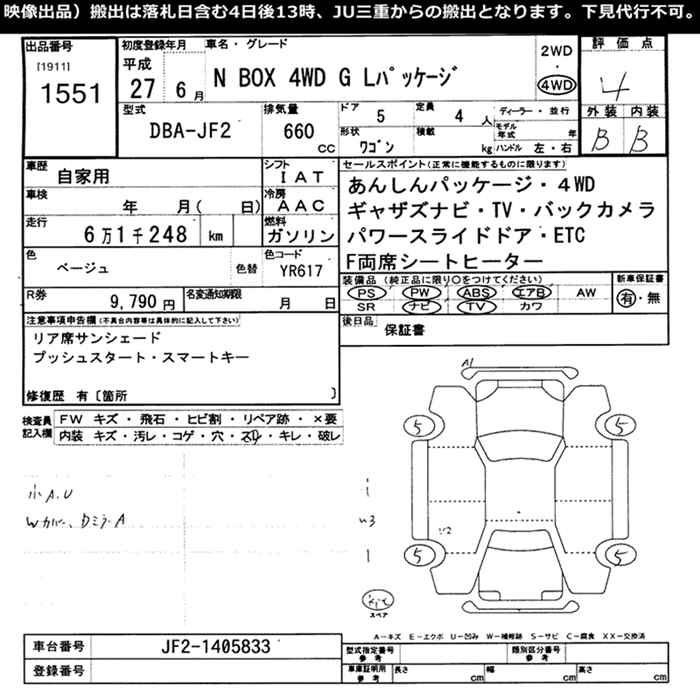 映像出品）搬出は落札日含む4日後13時、JU三重からの搬出となります。下見代行不可。
出品番号
[1911]
1551
初度登録年月
平成
27 6月
車名・グレード
N BOX 4WD G Lパッケージ
2WD
4WD
評価点
4
外装 内装
B B
型式
DBA-JF2
排気量
660 cc
ドア
5
定員
4 人
形状
ワゴン
積載
kg
ディーラー・並行
モデル年式 年
ハンドル 左・右
車歴
自家用
車検
年 月( 日)
走行
6万1千248 km
色
ベージュ
色替
シフト
IAT
冷房
AAC
燃料
ガソリン
色コード
YR617
R券
9,790円
名変通知期限
月 日
セールスポイント(正常に機能するものに限ります)
あんしんパッケージ・4WD
ギャザズナビ・TV・バックカメラ
パワースライドドア・ETC
F両席シートヒーター
装備品(純正品に限り○をつけてください)
PS PW ABS エアB AW
SR ナビ TV カワ
新車保証書
有・無
後日品
保証書
注意事項申告欄(不具合内容等は具体的に記入して下さい)
リア席サンシェード
プッシュスタート・スマートキー
修復歴 有〔箇所 〕
検査員記入欄
FW キズ・飛石・ヒビ割・リペア跡・×要
内装 キズ・汚レ・コゲ・穴・スレ・キレ・破レ
小A.U
Wカバー、DミラーA
A1
5 5
5 5
U2
スペア
A−キズ E−エクボ U−凹み W−補修跡 S−サビ C−腐食 XX−交換済
車台番号
JF2-1405833
登録番号
型式指定番号
参考
類別区分番号
参考
車庫証明用
参考
長さ cm
幅 cm
高さ cm